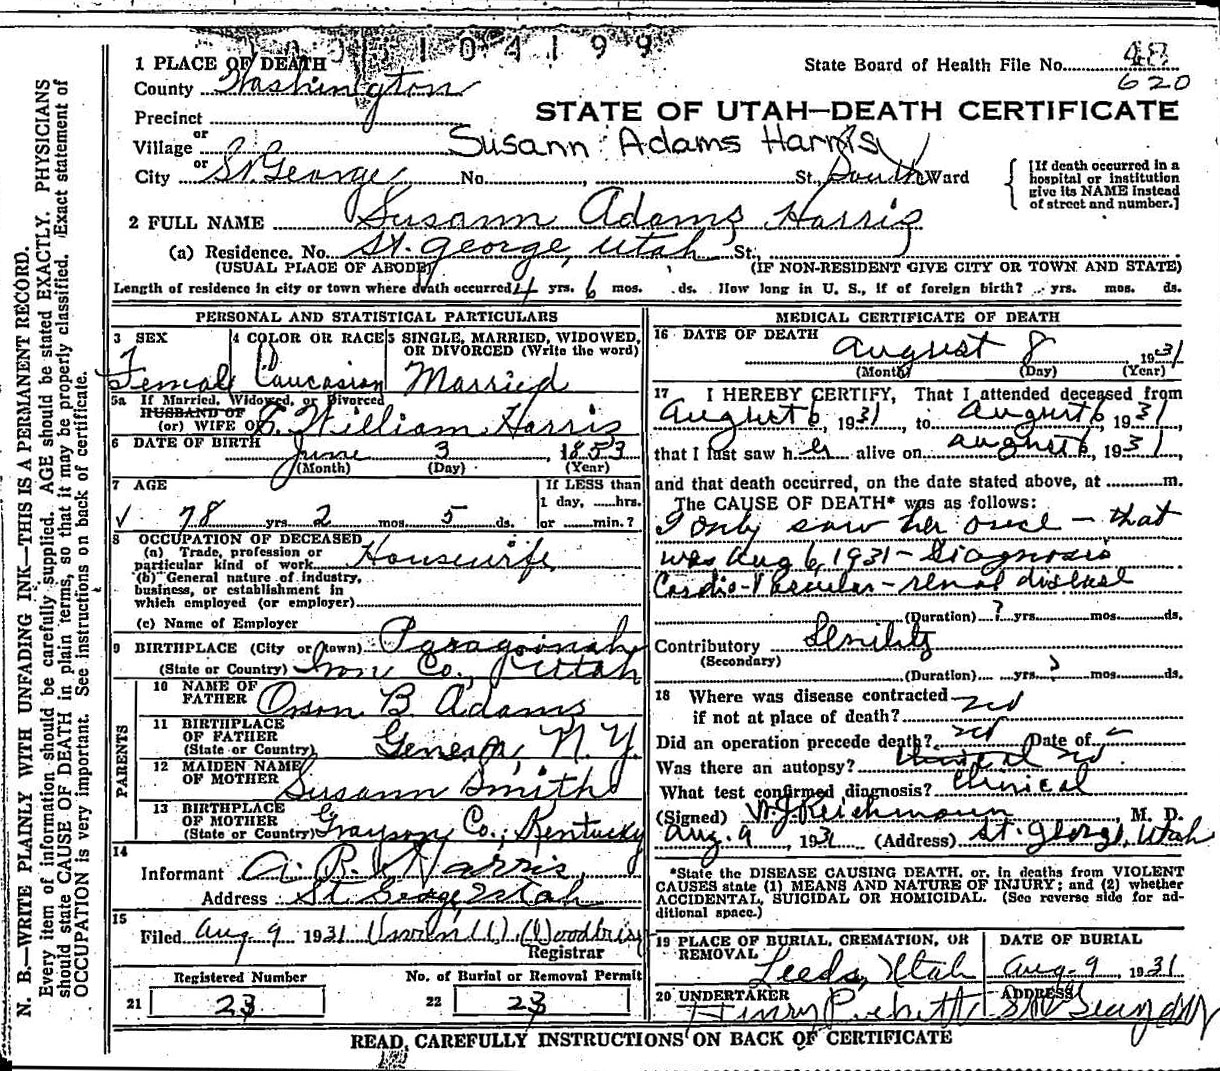 1 PLACE OF DEATH
State Board of Health File No. 48
620
County Washington
Precinct
STATE OF UTAH—DEATH CERTIFICATE
or
Village
Susann Adams Harris
or
City St. George No. , St., South Ward
[If death occurred in a hospital or institution give its NAME instead of street and number.]
2 FULL NAME Susann Adams Harris
(a) Residence. No. St. George, Utah St.,
(USUAL PLACE OF ABODE) (IF NON-RESIDENT GIVE CITY OR TOWN AND STATE)
Length of residence in city or town where death occurred 4 yrs. 6 mos. ds. How long in U. S., if of foreign birth? yrs. mos. ds.
PERSONAL AND STATISTICAL PARTICULARS
3 SEX 4 COLOR OR RACE 5 SINGLE, MARRIED, WIDOWED, OR DIVORCED (Write the word)
Female Caucasian Married
5a If Married, Widowed, or Divorced
HUSBAND OF
(or) WIFE OF William Harris
6 DATE OF BIRTH June 3, 1853
(Month) (Day) (Year)
7 AGE If LESS than
1 day, hrs.
78 yrs. 2 mos. 5 ds. or min.?
8 OCCUPATION OF DECEASED
(a) Trade, profession or
particular kind of work Housewife
(b) General nature of industry,
business, or establishment in
which employed (or employer)
(c) Name of Employer
9 BIRTHPLACE (City or town) Paragoonah
(State or Country) Iron Co., Utah
PARENTS
10 NAME OF FATHER Orson B. Adams
11 BIRTHPLACE OF FATHER
(State or Country) Genesa, N. Y.
12 MAIDEN NAME OF MOTHER Susann Smith
13 BIRTHPLACE OF MOTHER
(State or Country) Grayson Co., Kentucky
14
Informant Harris
Address St. George Utah
15
Filed Aug 9 1931
Registrar
Registered Number No. of Burial or Removal Permit
21 23 22 23
MEDICAL CERTIFICATE OF DEATH
16 DATE OF DEATH
August 8 1931
(Month) (Day) (Year)
17 I HEREBY CERTIFY, That I attended deceased from
August 6, 1931, to August 6, 1931,
that I last saw her alive on August 6, 1931,
and that death occurred, on the date stated above, at m.
The CAUSE OF DEATH* was as follows:
I only saw her once - that
was Aug 6, 1931 - Diagnosis
Cardio-Vascular-renal disease
(Duration) ? yrs. mos. ds.
Contributory Senility
(Secondary)
(Duration) yrs. ? mos. ds.
18 Where was disease contracted
if not at place of death? no
Did an operation precede death? no Date of -
Was there an autopsy? no.
What test confirmed diagnosis? Clinical
(Signed) W.J. Reichmann, M. D.
Aug. 9, 1931 (Address) St. George, Utah
*State the DISEASE CAUSING DEATH, or, in deaths from VIOLENT
CAUSES state (1) MEANS AND NATURE OF INJURY; and (2) whether
ACCIDENTAL, SUICIDAL OR HOMICIDAL. (See reverse side for ad-
ditional space.)
19 PLACE OF BURIAL, CREMATION, OR REMOVAL DATE OF BURIAL
Leeds, Utah Aug. 9 1931
20 UNDERTAKER ADDRESS
Henry
READ CAREFULLY INSTRUCTIONS ON BACK OF CERTIFICATE
N. B.—WRITE PLAINLY WITH UNFADING INK—THIS IS A PERMANENT RECORD.
Every item of information should be carefully supplied. AGE should be stated EXACTLY. PHYSICIANS
should state CAUSE OF DEATH in plain terms, so that it may be properly classified. Exact statement of
OCCUPATION is very important. See instructions on back of certificate.